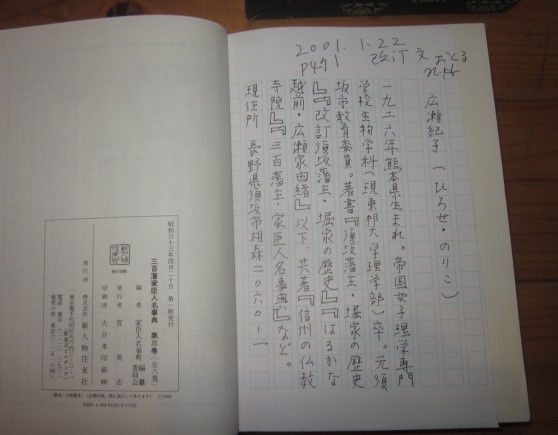 2001.1.22
P491 改訂文
広瀬紀子(ひろせ・のりこ)
一九二六年熊本県生まれ。帝国女子理学専門
学校生物学科(現東邦大学理学部)卒。元須
坂市教育委員。著書『須坂藩主・堀家の歴史
』『改訂須坂藩主・堀家の歴史』『はるかな
越前・広瀬家由緒』以下、共著『信州の仏教
寺院』『三百藩藩主・家臣人名事典』など。
現住所 長野県須坂市相森二〇六〇ー一
三百藩家臣人名事典 第三巻(全六巻)
昭和六十三年四月二十日 第一刷発行
編者 家臣人名事典編纂委員会
発行者 菅英志
印刷所 大日本印刷
発行所 株式会社 新人物往来社